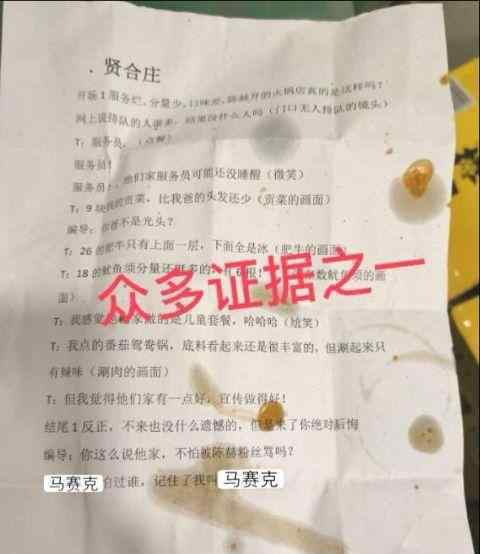 . 贤合庄
开场1 服务烂,分量少,口味差,陈赫开的火锅店真的是这样吗?
网上说排队的人很多,结果没什么人吗(门口无人排队的镜头)
T:服务员,(点餐)
服务员!
服务员!,他们家服务员可能还没睡醒(微笑)
T:9块我的贡菜,比我爸的头发还少(贡菜的画面)
编导:你爸不是光头?
T:26的肥牛只有上面一层,下面全是冰(肥牛的画面)
T:18的鱿鱼须分量还挺多的 根! 数鱿鱼须的画
面)
T:我感觉他们家做的是儿童套餐,哈哈哈(尬笑)
T:我点的番茄鸳鸯锅,底料看起来还是很丰富的,但涮起来只
有辣味(涮肉的画面)
T:但我觉得他们家有一点好,宣传做得好!
结尾1 反正,不来也没什么遗憾的,但是来了你绝对后悔
编导:你这么说他家,不怕被陈赫粉丝骂吗?
马赛克 怕过谁,记住了我叫 马赛克
众多证据之一